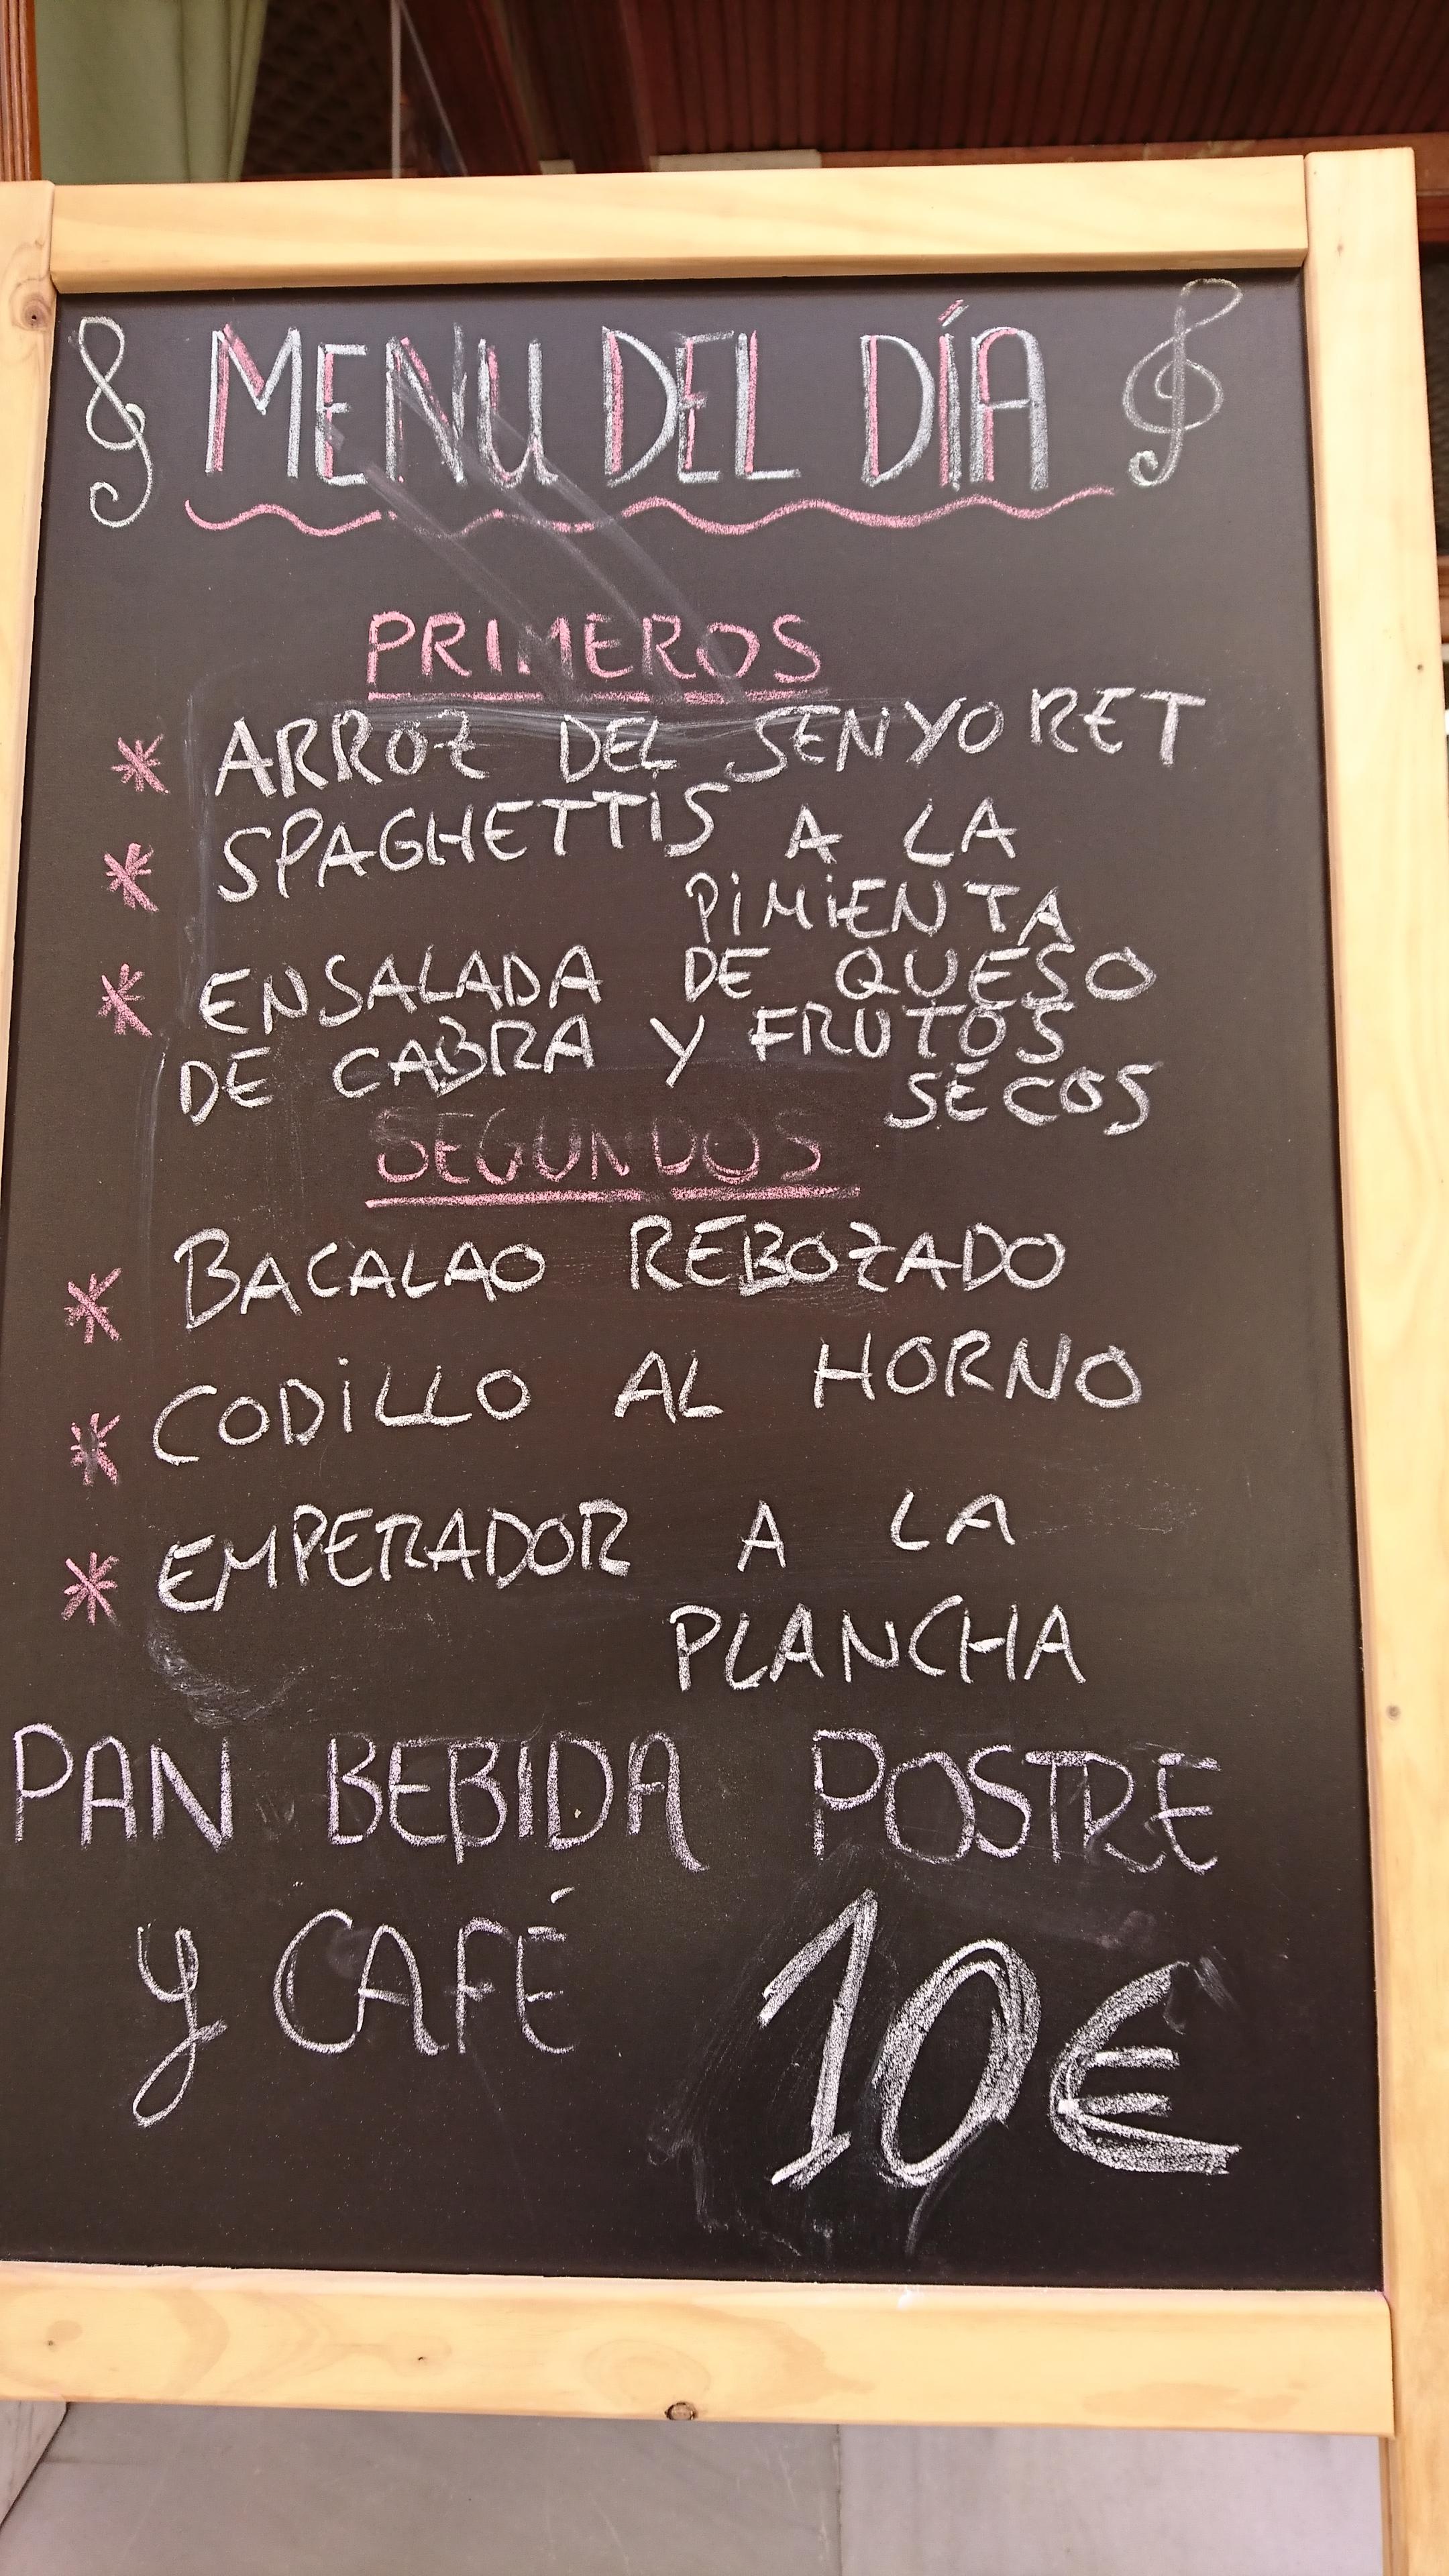 MENU DEL DÍA
PRIMEROS
* ARROZ DEL SENYORET
* SPAGHETTIS A LA
PIMIENTA
* ENSALADA DE QUESO
DE CABRA Y FRUTOS
SECOS
SEGUNDOS
* BACALAO REBOZADO
* CODILLO AL HORNO
* EMPERADOR A LA
PLANCHA
PAN BEBIDA POSTRE
Y CAFÉ 10€